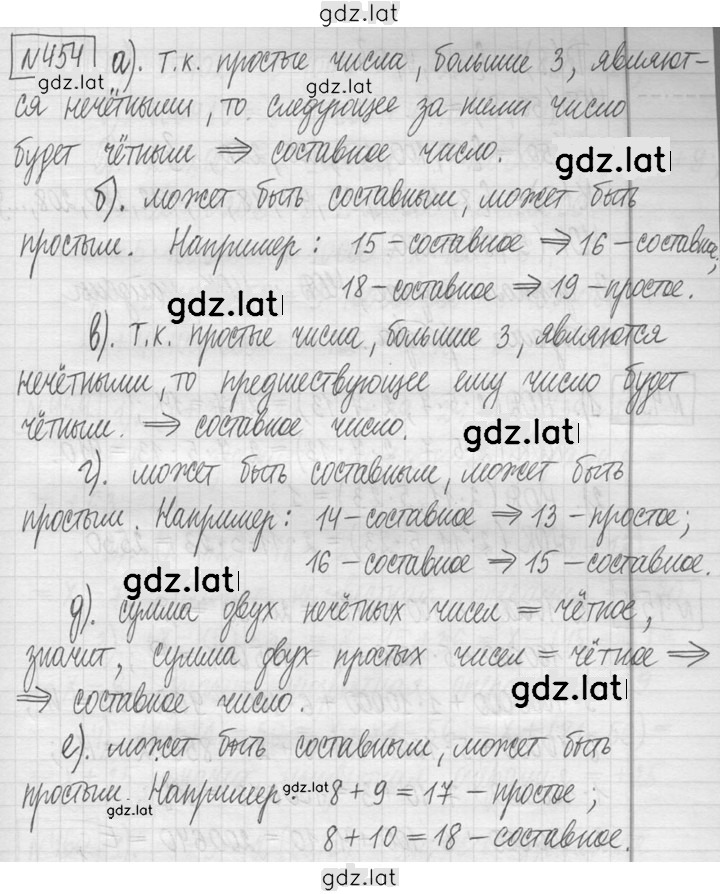 gdz.lat
№454 а). т.к. простые числа, больше 3, являют-
gdz.lat
ся нечётными, то следующее за ними число
будет чётным ⇒ составное число.
gdz.lat
б). может быть составным, может быть
простым. Например: 15 - составное ⇒ 16 - составное;
18 - составное ⇒ 19 - простое.
gdz.lat
в). т.к. простые числа, больше 3, являются
нечётными, то предшествующее ему число будет
чётным. ⇒ составное число.
gdz.lat
г). может быть составным, может быть
простым. Например: 14 - составное ⇒ 13 - простое;
16 - составное ⇒ 15 - составное.
gdz.lat
д). сумма двух нечётных чисел = чётное,
значит, сумма двух простых чисел = чётное ⇒
⇒ составное число.
gdz.lat
е). может быть составным, может быть
простым. Например: 8 + 9 = 17 - простое;
gdz.lat
gdz.lat
8 + 10 = 18 - составное.
gdz.lat